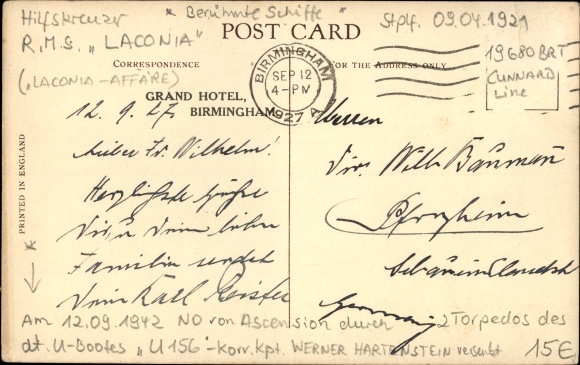 Hilfskreuzer * Berühmte Schiffe * Stplf. 09.04.1921
R.M.S. „LACONIA"
(„LACONIA-AFFÄRE)
POST CARD
19680 BRT
CUNNARD
Line
CORRESPONDENCE
FOR THE ADDRESS ONLY
BIRMINGHAM
SEP 12
4-PM
1927
GRAND HOTEL,
BIRMINGHAM
12. 9. 27.
Lieber Fr. Wilhelm!
Herzlichste Grüße
Dir u. Deiner lieben
Familie sendet
Dein Karl
Herren
Dir. Wilh. Baumann
Pforzheim
Germany
PRINTED IN ENGLAND
Am 12.09.1942 NO von Ascension durch 2 Torpedos des
dt. U-Bootes „U 156" - Korv. Kpt. WERNER HARTENSTEIN versenkt 15€